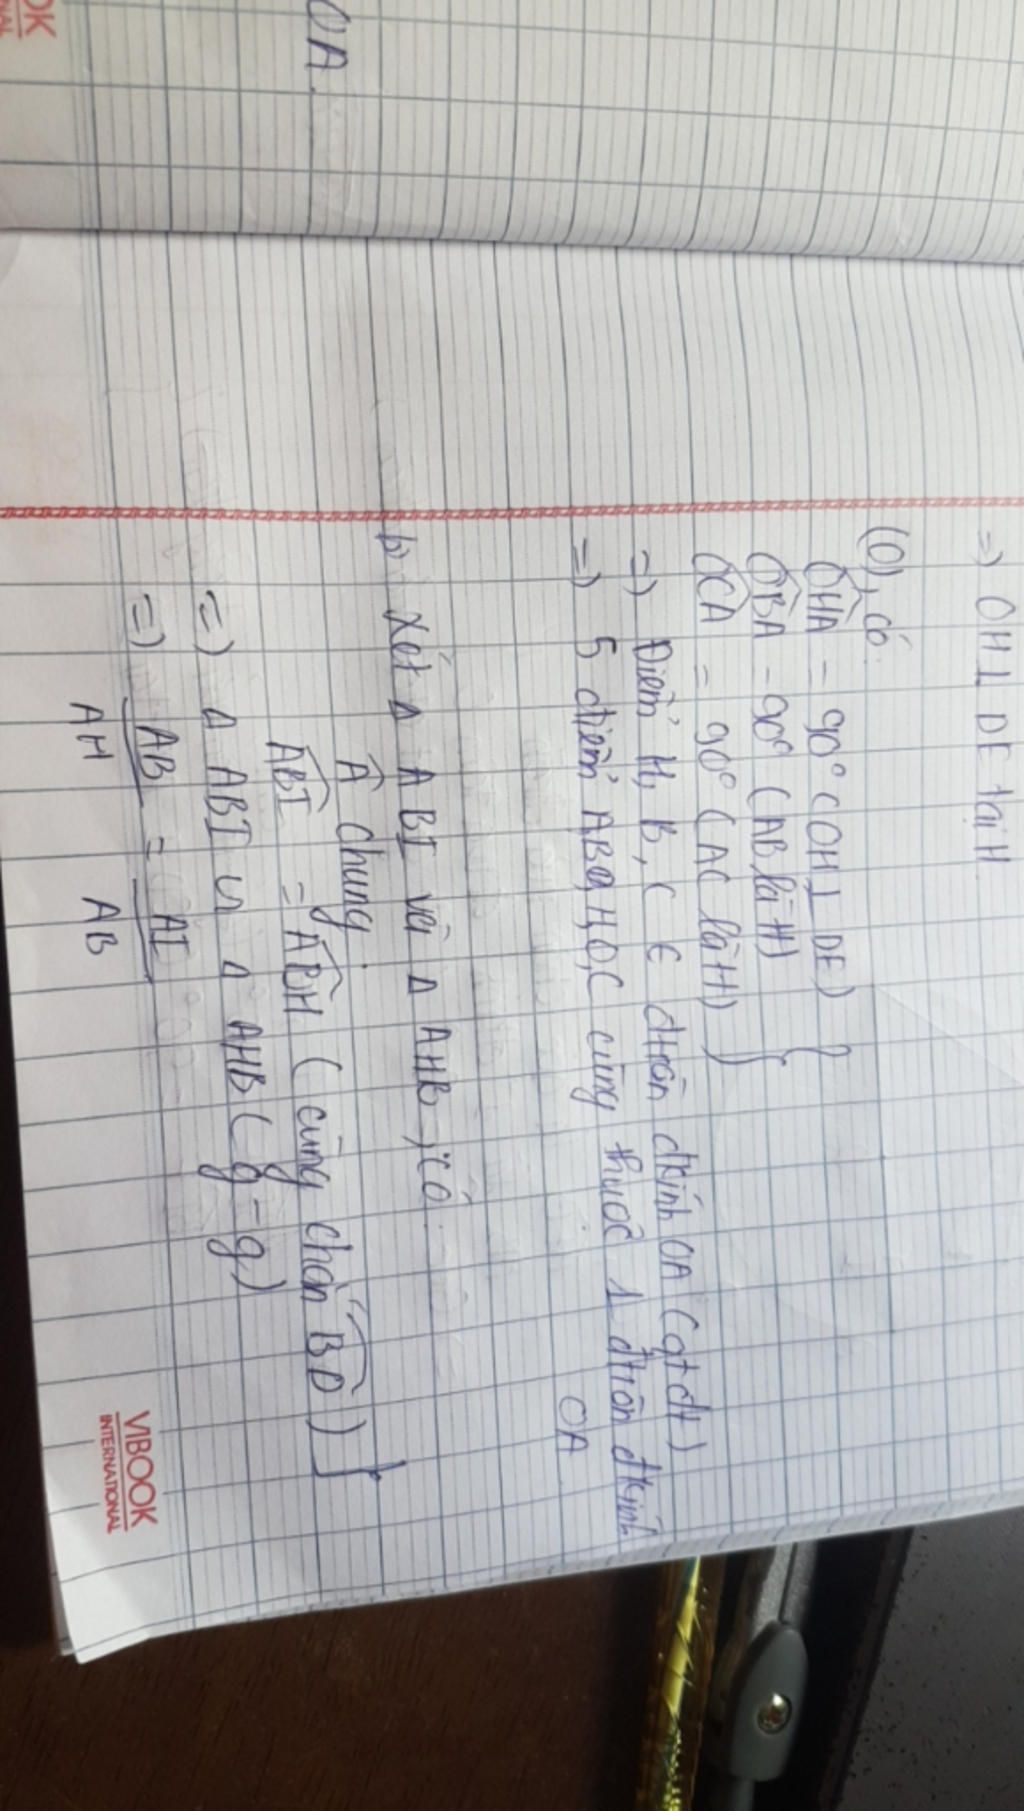 OA.
=) OH ⊥ DE tại H
(O), có:
OHA = 90° (OH ⊥ DE)
OBA = 90° (AB là tt)
OCA = 90° (AC là tt)
=) Điểm H, B, C ∈ đtròn đkính OA (qt đt)
=) 5 điểm A, B, H, O, C cùng thuộc 1 đtròn đkính
OA
b) Xét Δ ABI và Δ AHB, có:
A chung.
ABI = ABH (cùng chắn BD)
=) Δ ABI ∽ Δ AHB (g-g)
=) AB/AH = AI/AB
VIBOOK
INTERNATIONAL